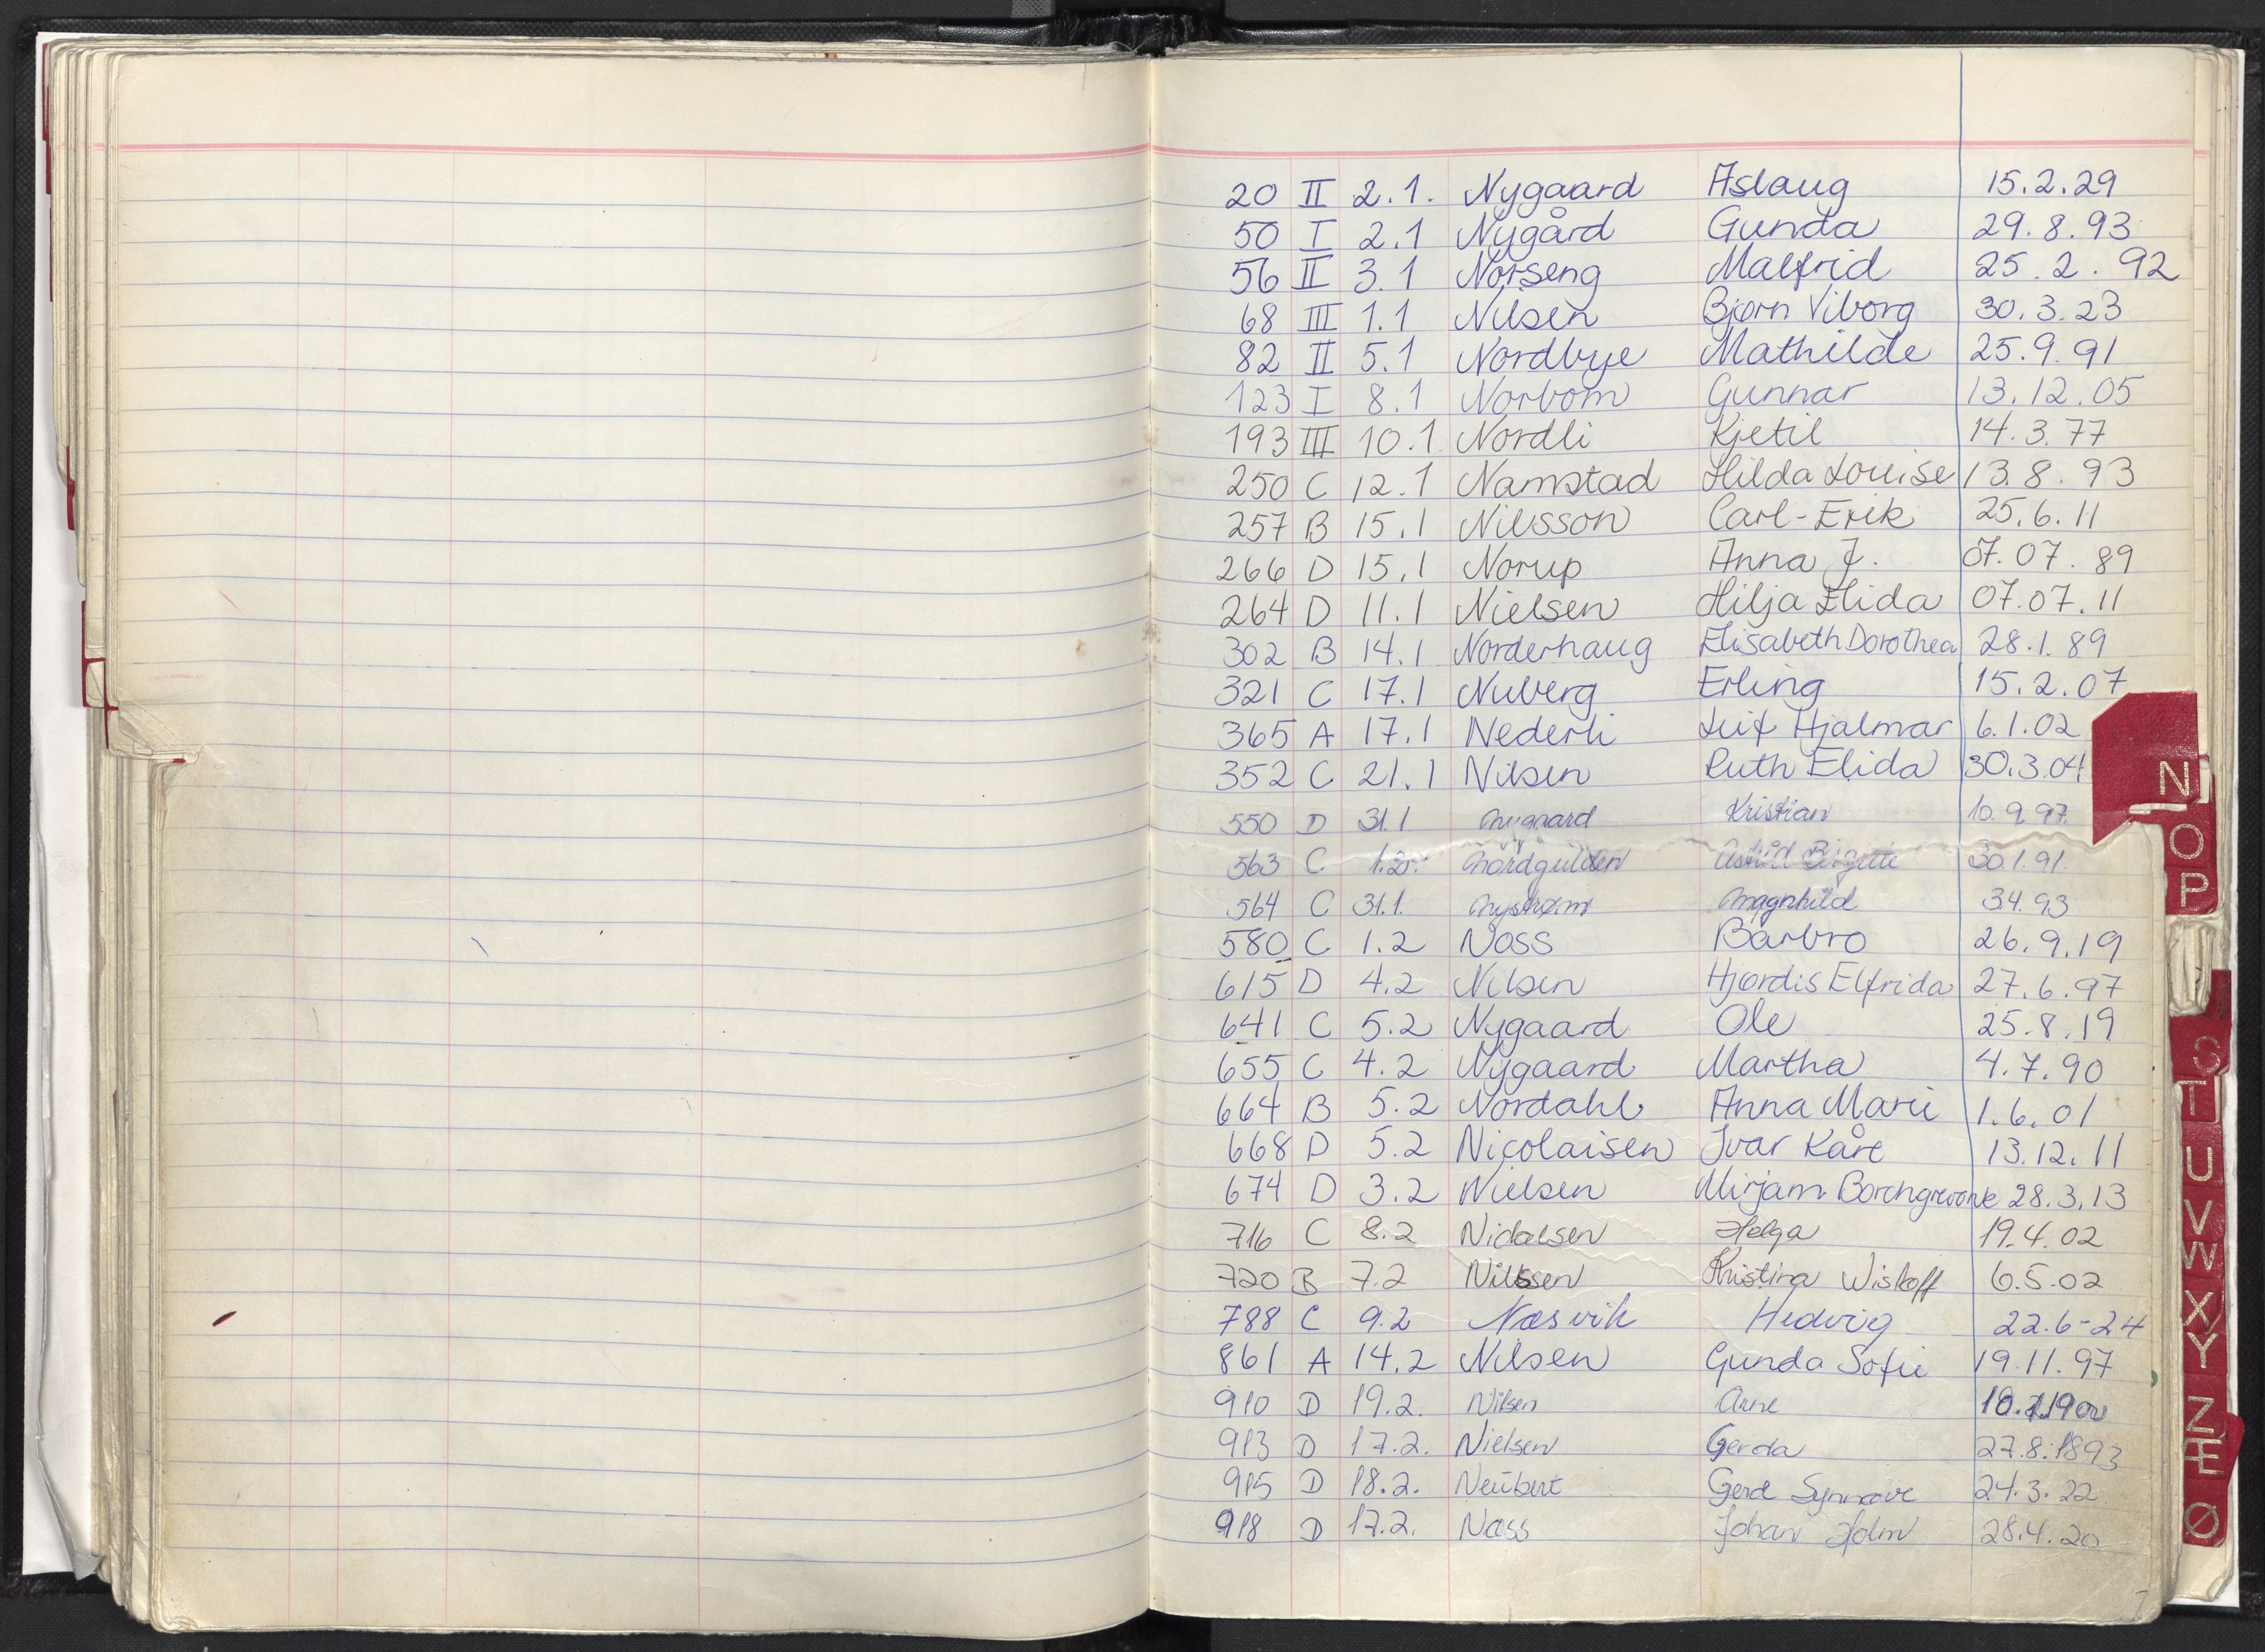 20 II 2.1. Nygaard Aslaug 15.2.29
50 I 2.1 Nygård Gunda 29.8.93
56 II 3.1 Norseng Malfrid 25.2.92
68 III 1.1 Nilsen Bjørn Viborg 30.3.23
82 II 5.1 Nordbye Mathilde 25.9.91
123 I 8.1 Norbom Gunnar 13.12.05
193 III 10.1 Nordli Kjetil 14.3.77
250 C 12.1 Namstad Hilda Louise 13.8.93
257 B 15.1 Nilsson Carl-Erik 25.6.11
266 D 15.1 Norup Anna J. 07.07.89
264 D 11.1 Nielsen Hilja Elida 07.07.11
302 B 14.1 Norderhaug Elisabeth Dorothea 28.1.89
321 C 17.1 Nuberg Erling 15.2.07
365 A 17.1 Nederli Leif Hjalmar 6.1.02
352 C 21.1 Nilsen Ruth Elida 30.3.04
550 D 31.1 Nygaard Kristian 10.9.97
563 C 1.2. Nordgulden Astrid Birgitte 30.1.91.
564 C 31.1. Nystrøm Magnhild 3.4.93
580 C 1.2 Noss Barbro 26.9.19
615 D 4.2 Nilsen Hjørdis Elfrida 27.6.97
641 C 5.2 Nygaard Ole 25.8.19
655 C 4.2 Nygaard Martha 4.7.90
664 B 5.2 Nordahl Anna Marie 1.6.01
668 D 5.2 Nicolaisen Ivar Kåre 13.12.11
674 D 3.2 Nielsen Mirjam 28.3.13
716 C 8.2 Nidalsen Helga 19.4.02
720 B 7.2 Nilssen Kristina Wiskoff 6.5.02
788 C 9.2 Næsvik Hedvig 22.6-24
861 A 14.2 Nilsen Gunda Sofie 19.11.97
910 D 19.2. Nilsen Arne
913 D 17.2. Nielsen Gerda 27.8.1893
915 D 18.2. Neubert Gerd Synnøve 24.3.22
918 D 17.2. Næss Johan Holm 28.4.20
N
O
P
S
T
U
V
W
X
Y
Z
Æ
Ø